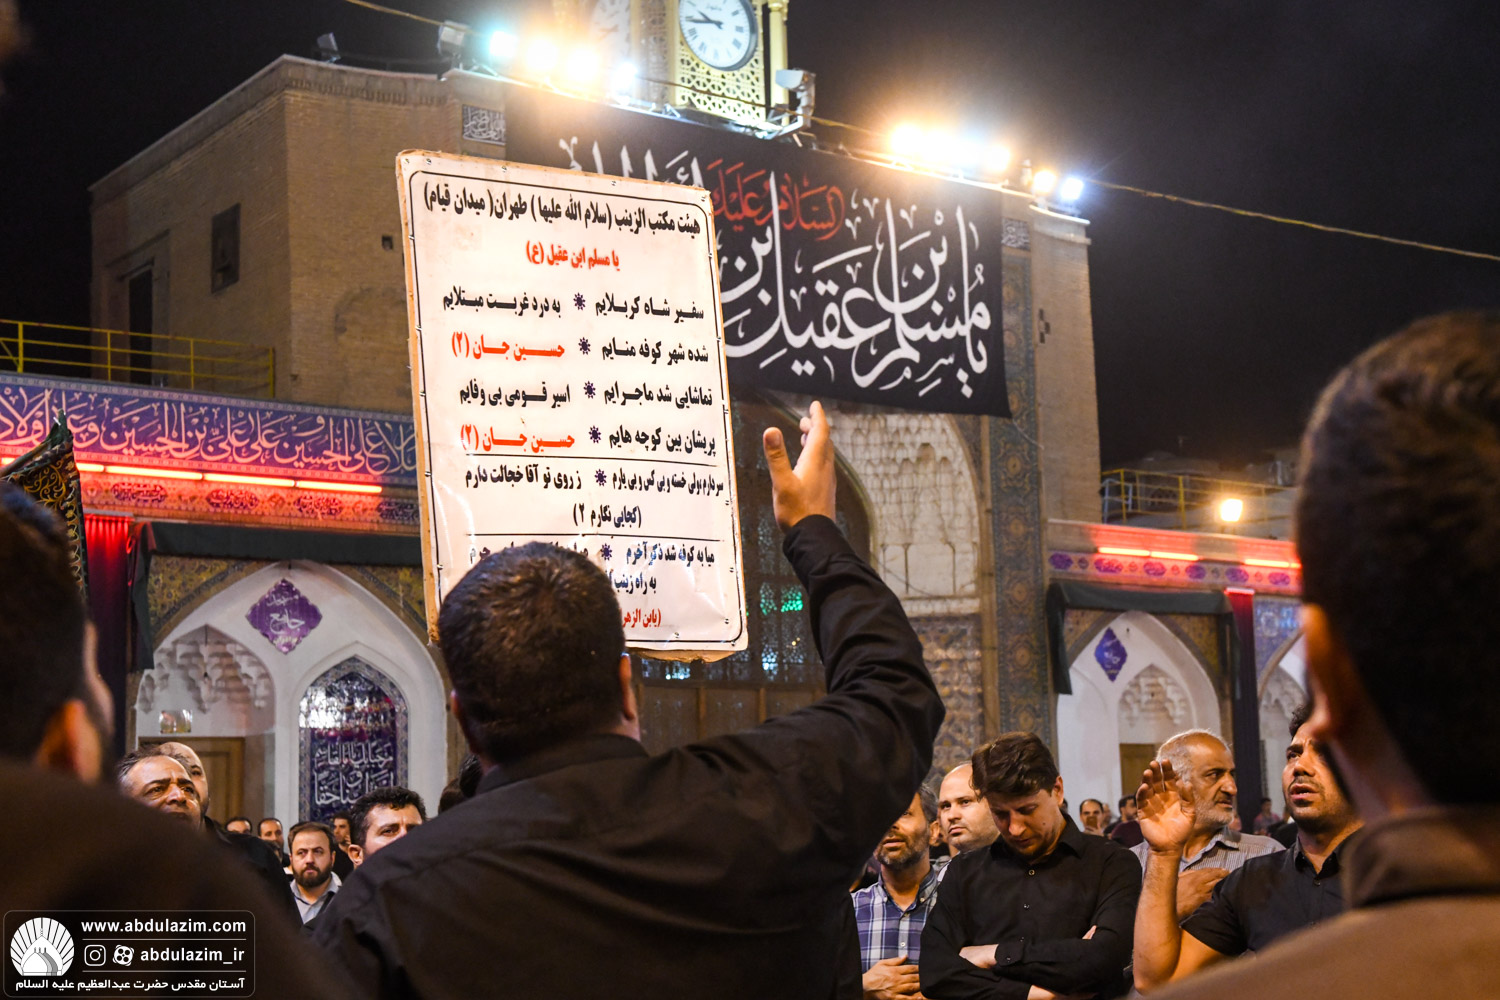 هیئت مکتب الزینب (سلام الله علیها) طهران( میدان قیام)
یا مسلم ابن عقیل (ع)
سفیر شاه کربلایم * به درد غربت مبتلایم
شده شهر کوفه منایم * حسین جان (۲)
تماشایی شد ماجرایم * اسیر قومی بی وفایم
پریشان بین کوچه هایم * حسین جان (۲)
سردارم ولی خسته و بی کس و بی یارم * ز روی تو آقا خجالت دارم
(کجایی نگارم ۲)
میا به کوفه شد ذکر آخرم *
به راه زینب
(یابن الزهر
السلام علیک
یا مسلم بن عقیل بن
علی الحسین و علی علی بن الحسین و علی اولاد
جامع
www.abdulazim.com
abdulazim_ir
آستان مقدس حضرت عبدالعظیم علیه السلام